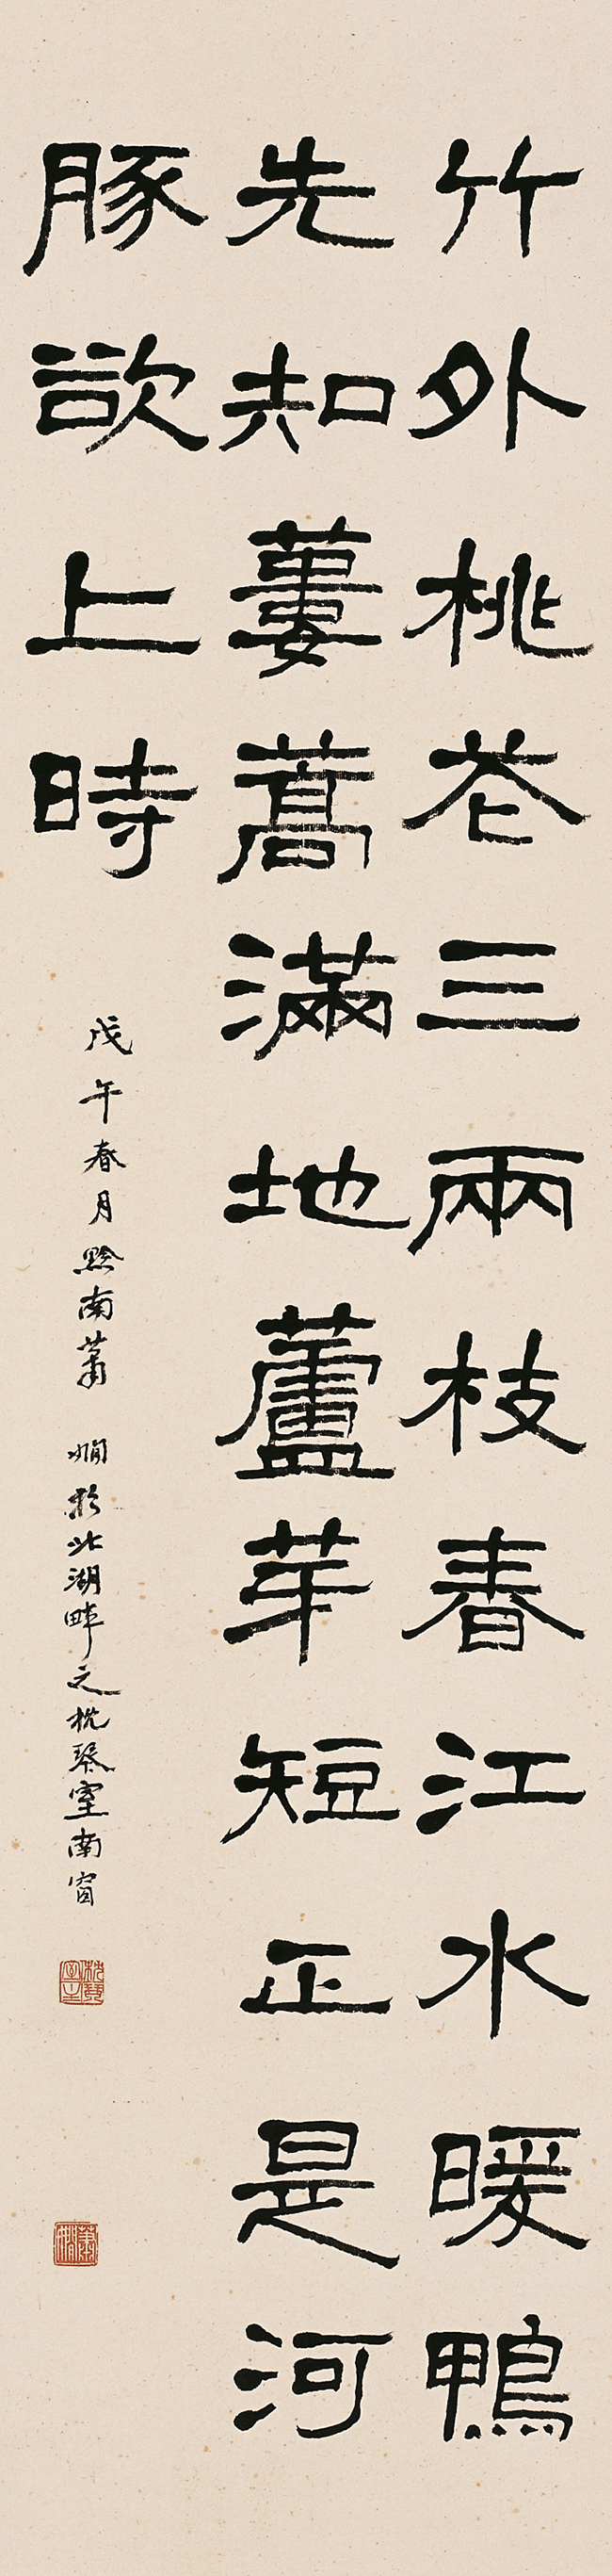 竹外桃花三兩枝春江水暖鴨
先知蔞蒿滿地蘆芽短正是河
豚欲上時
戊午春月黔南蕭
嫺於北湖畔之枕琴室南窗
枕琴室
蕭嫺